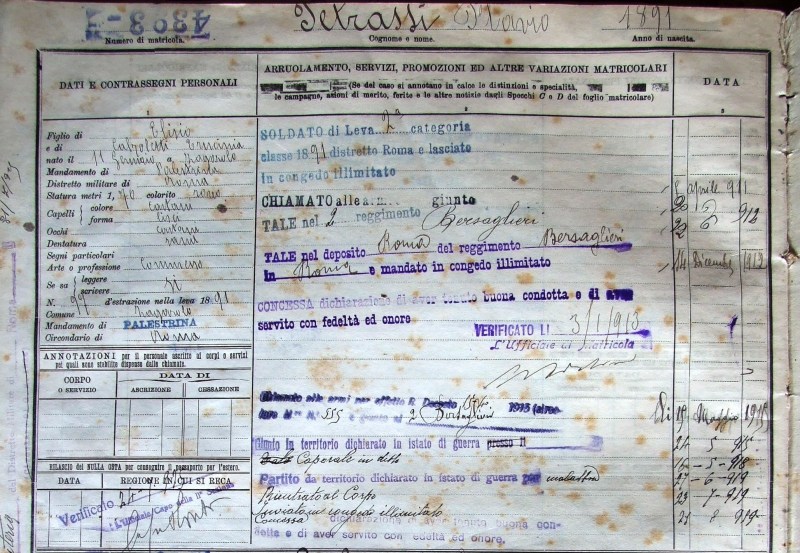 4393
Petrassi Mario 1891
Numero di matricola. Cognome e nome. Anno di nascita.
DATI E CONTRASSEGNI PERSONALI
1
Figlio di Elisio
e di Ersinia
nato il 11 Gennaio a Zagarolo
Mandamento di Palestrina
Distretto militare di Roma
Statura metri 1, 70 colorito roseo
Capelli colore castani
forma lisci
Occhi castani
Dentatura sana
Segni particolari
Arte o professione Commesso
Se sa leggere scrivere si
N. 99 d'estrazione nella leva 1891
Comune Zagarolo
Mandamento di PALESTRINA
Circondario di Roma
ANNOTAZIONI per il personale ascritto ai corpi o servizi
pei quali sono stabilite dispense dalle chiamate.
CORPO O SERVIZIO
DATA DI
ASCRIZIONE CESSAZIONE
RILASCIO DEL NULLA OSTA per conseguire il passaporto per l'estero.
DATA REGIONE IN CUI SI RECA
Verificato
ARRUOLAMENTO, SERVIZI, PROMOZIONI ED ALTRE VARIAZIONI MATRICOLARI
(Se del caso si annotano in calce le distinzioni e specialità,
le campagne, azioni di merito, ferite e le altre notizie dagli Specchi C e D del foglio matricolare)
2
DATA
3
SOLDATO di Leva 2a categoria
classe 1891 distretto Roma e lasciato
in congedo illimitato 8 aprile 911
CHIAMATO alle a.m. giunto
TALE nel 2 reggimento Bersaglieri 22 6 912
TALE nel deposito Roma del reggimento Bersaglieri
In Roma e mandato in congedo illimitato 14 Dicembre 1912
CONCESSA dichiarazione di aver tenuto buona condotta e di aver
servito con fedeltà ed onore
VERIFICATO LI 3/1/913
L'Ufficiale di Matricola
Chiamato alle armi per effetto R. Decreto 1915
N. 555 e giunto al 2 Bersaglieri Li 19 Maggio 1915
Giunto in territorio dichiarato in istato di guerra 24 5 915
Caporale in detto 16 - 5 - 918
Partito da territorio dichiarato in istato di guerra per malattia 27 - 6 - 919
Rientrato al Corpo 23 - 7 - 919
Inviato in congedo illimitato 21 8 919
Concessa dichiarazione di aver tenuto buona con-
dotta e di aver servito con fedeltà ed onore.